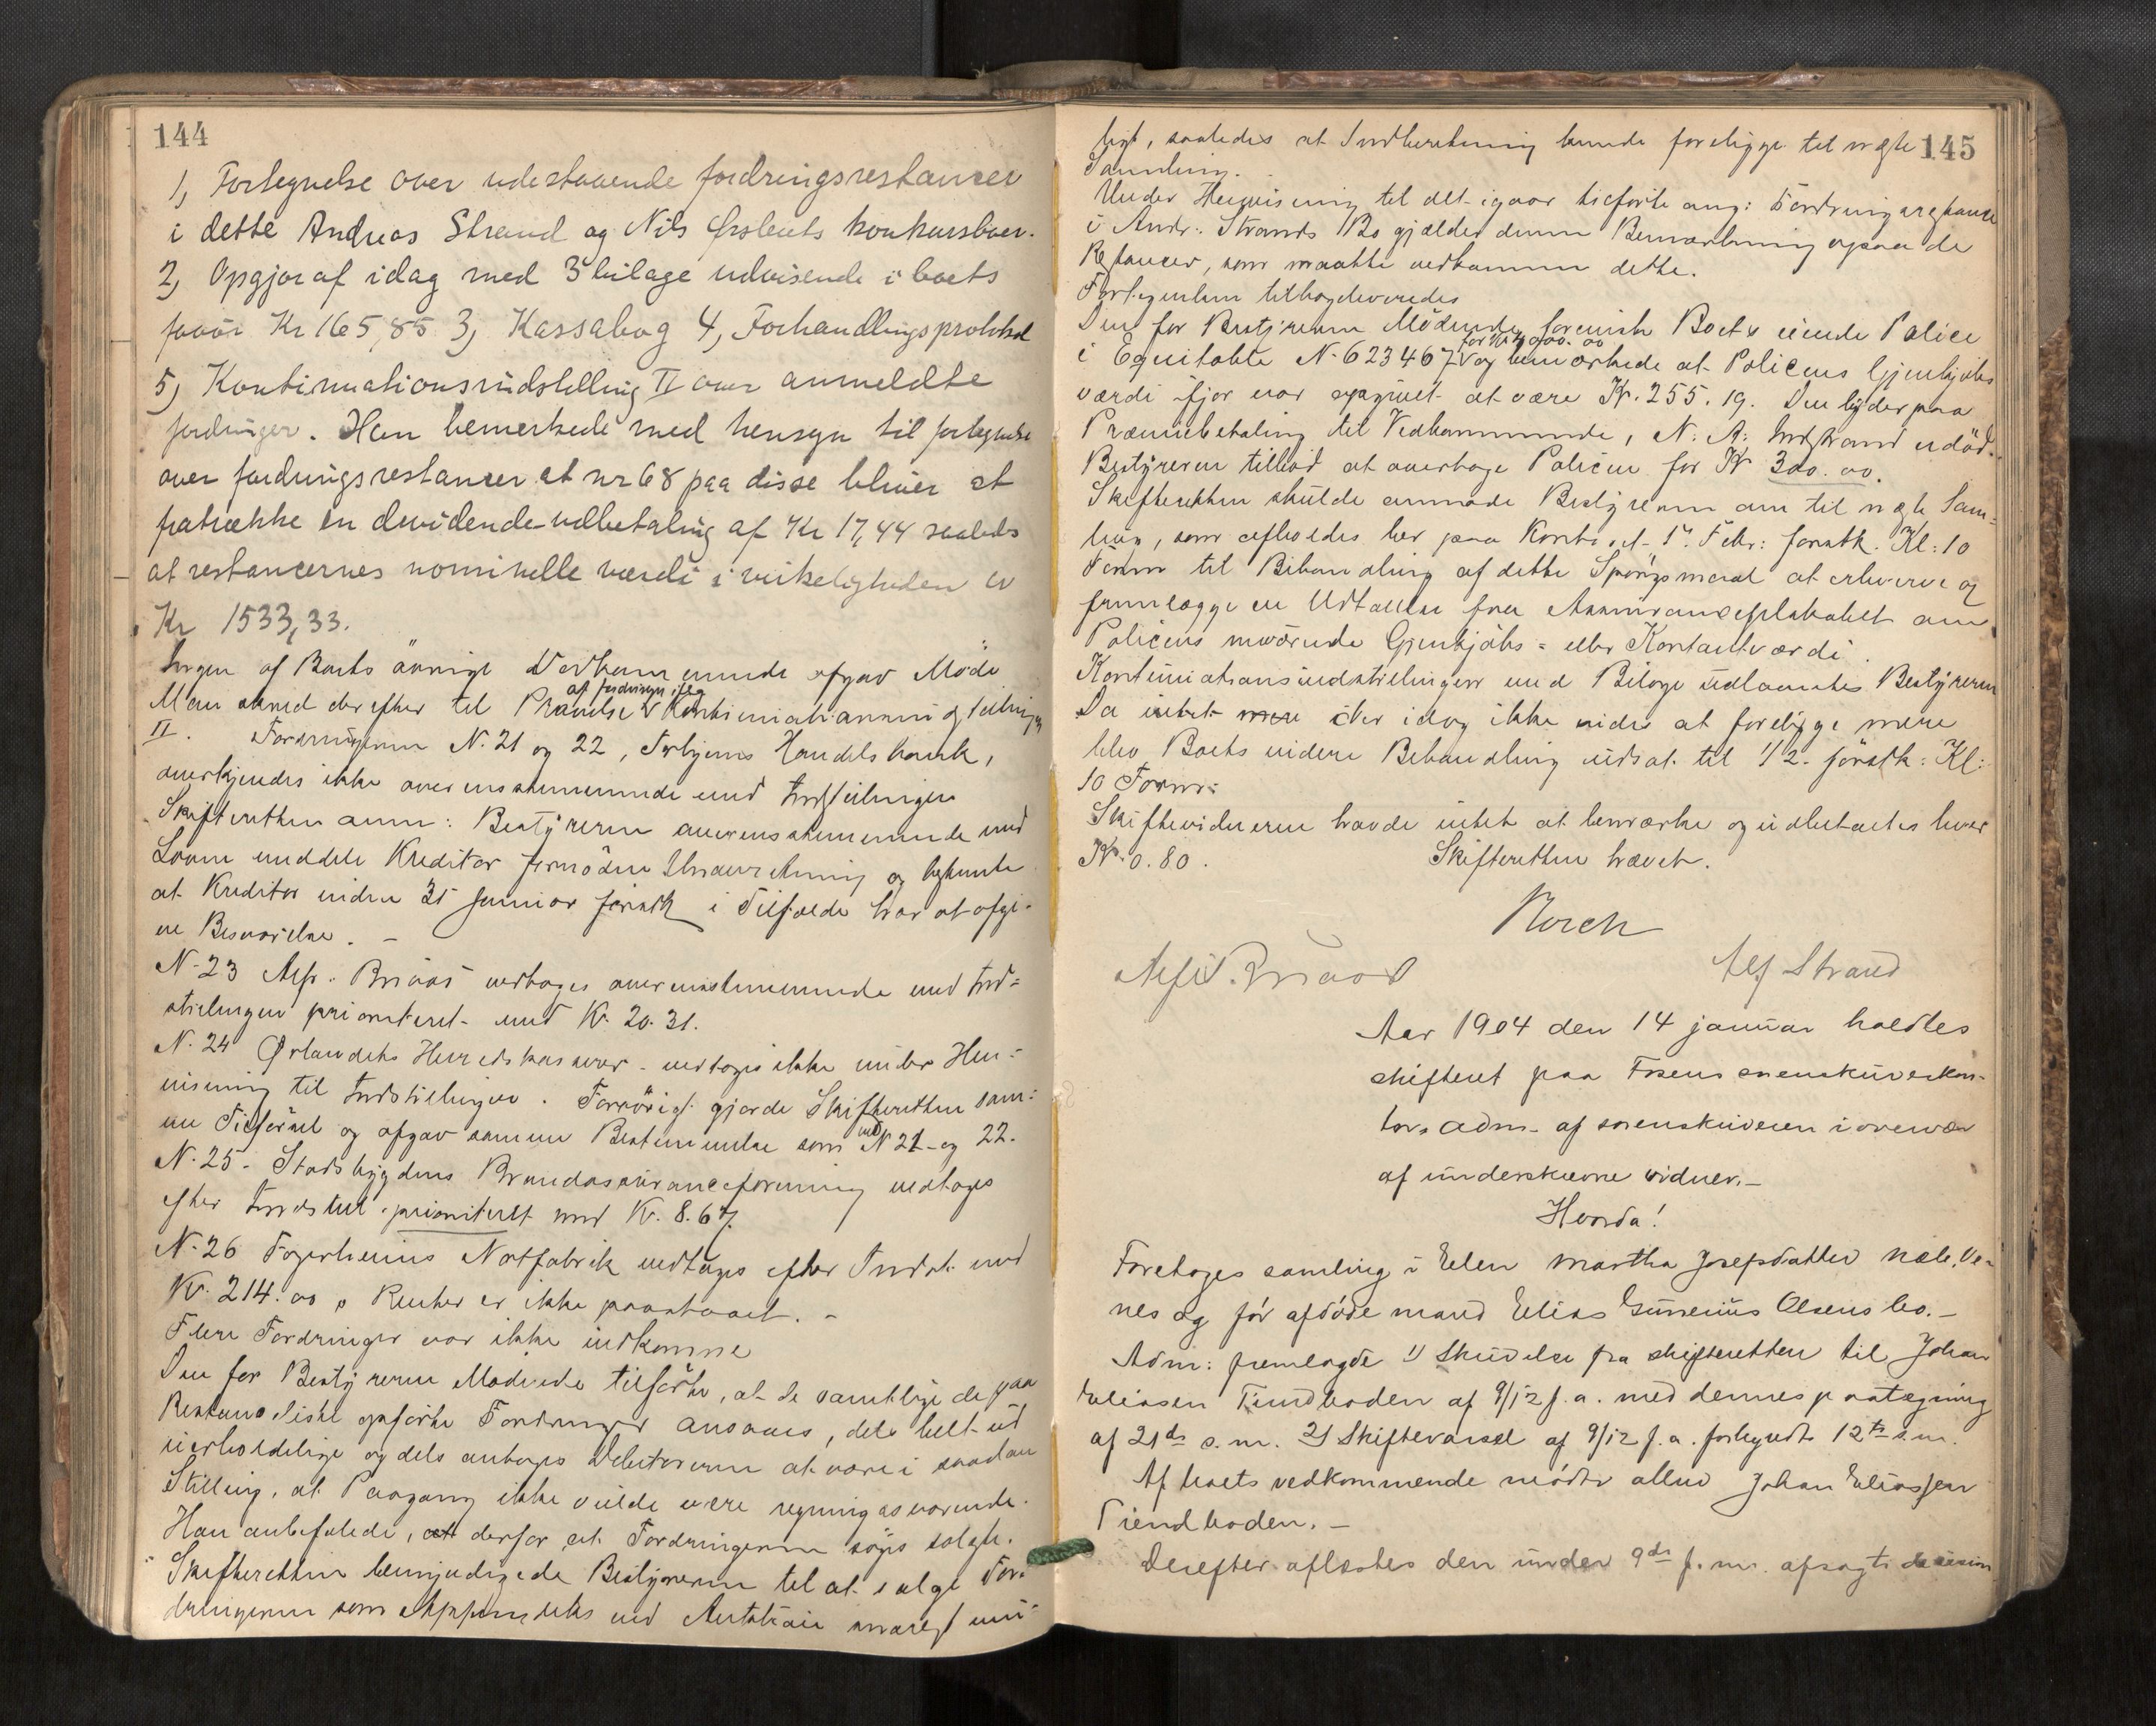 144
1, Fortegnelse over udestaaende fordringsrestancer
i dette Andreas Strand og Nils Ørslents konkursboer.
2, Opgjør af idag med 3 bilage udvisende i boets
favør Kr 165,85 3, Kassabog 4, Forhandlingsprotokol
5, Kontinuationsindstilling II over anmeldte
fordringer. Han bemerkede med hensyn til fortegnelse
over fordringsrestancer at nr 68 paa disse bliver at
fratrække en devidende-udbetaling af Kr 17,44 saaledes
at restancernes nominelle værdi i virkeligheden er
Kr 1533,33.
Ingen af Boets øvrige Vedkommende afgav Møde
Man skred derefter til Prøvelse af fordringer ifølg Kontinuationsindstillingen
II. Fordringerne N. 21 og 22, Handelsbank,
anerkjendes ikke overensstemmende med Indstillingen
Skifteretten anm: Bestyreren overensstemmende med
Loven meddele Kreditor fornøden Underretning og bestemte
at Kreditor inden 31 Januar førstk i Tilfælde har at afgi-
ve Besvarelse. -
N. 23 Alfr. Braas vedtages overensstemmende med Ind=
stillingen prioriteret med Kr. 20.31.
N. 24 Ørlandets Herredskasserer vedtoges ikke under Hen=
visning til Indstillingen. Forøvrigt gjorde Skifteretten sam=
me Tilførsel og afgav samme Bestemmelse som ved N 21 og 22.
N. 25. Stadsbygdens Brandassuranceforening vedtages
efter Indstill. prioriteret med Kr. 8.67.
N. 26 Fagerheims Notfabrik vedtages efter Indst. med
Kr. 214.00, Renter er ikke paastaaet. -
Flere Fordringer var ikke indkomne
Den for Bestyreren Mødende tilførte, at de samtlige de paa
Restancelisten opførte Fordringer ansaaes, dels helt ud
uerholdelige og dels antages Debitorerne at være i saadan
Stilling, at Paagang ikke vilde være regningssvarende.
Han anbefalede, at derfor at Fordringerne søges solgte.
Skifteretten bemyndigede Bestyreren til at sælge For=
dringerne som ved Auktion snarest mu=
145
ligt, saaledes at Indberetning kunde foreligge til næste
Samling.
Under Henvisning til det igaar tilførte ang: Fordringsrestancer
i Andr. Strands Bo gjælder denne Bemærkning ogsaa de
Restancer, som maatte vedkomme dette.
Fortegnelsen tilbageleveredes
Den for Bestyreren Mødende foreviste Boets eiende Police
i Equitable N. 623467 for Kr 4000.00 og bemærkede at Policens Gjenkjøbs
værdi ifjor var opgivet at være Kr. 255.19. Den lyder paa
Præmiebetaling til Vedkommende, N. A. Indstrand udød.
Bestyreren tilbød at overtage Policen for Kr 300.00.
Skifteretten skulde anmode Bestyreren om til næste Sam=
ling, som afholdes her paa Kontoret 1. Febr: førstk. Kl: 10
Form til Behandling af dette Spørgsmaal at erhverve og
fremlægge en Udtalelse fra Assuranceselskabet om
Policens nuværende Gjenkjøbs- eller Kontantværdi.
Kontinuationsindstillingen med Bilage udlaantes Bestyreren
Da intet mere der idag ikke vides at foreligge mere
blev Boets videre Behandling udsat til 1/2. førstk: Kl:
10 Form:
Skiftevidnerne havde intet at bemærke og udbetaltes hver
Kr. 0.80. Skifteretten hævet.
Alfr. Braas Alf Strand
Aar 1904 den 14 januar holdtes
skifteret paa Fosens sorenskriverkon-
tor, adm. af sorenskriveren i overvær
af underskrevne vidner. -
Hvorda!
Foretoges samling i Elen Martha Josefsdatter Næb. Ve-
nes og før afdøde mand Elias Gunerius Olsens bo. -
Adm: fremlagde 1) Skrivelse fra skifteretten til Johan
Eliasen Tiendboden af 9/12 f.a. med dennes paategning
af 21de s.m. 2) Skiftevarsel af 9/12 f.a. forkyndt 12te s.m.
Af boets vedkommende mødte alene Johan Eliassen
Tiendboden. -
Derefter aflæstes den under 9de f.m. afsagte decision